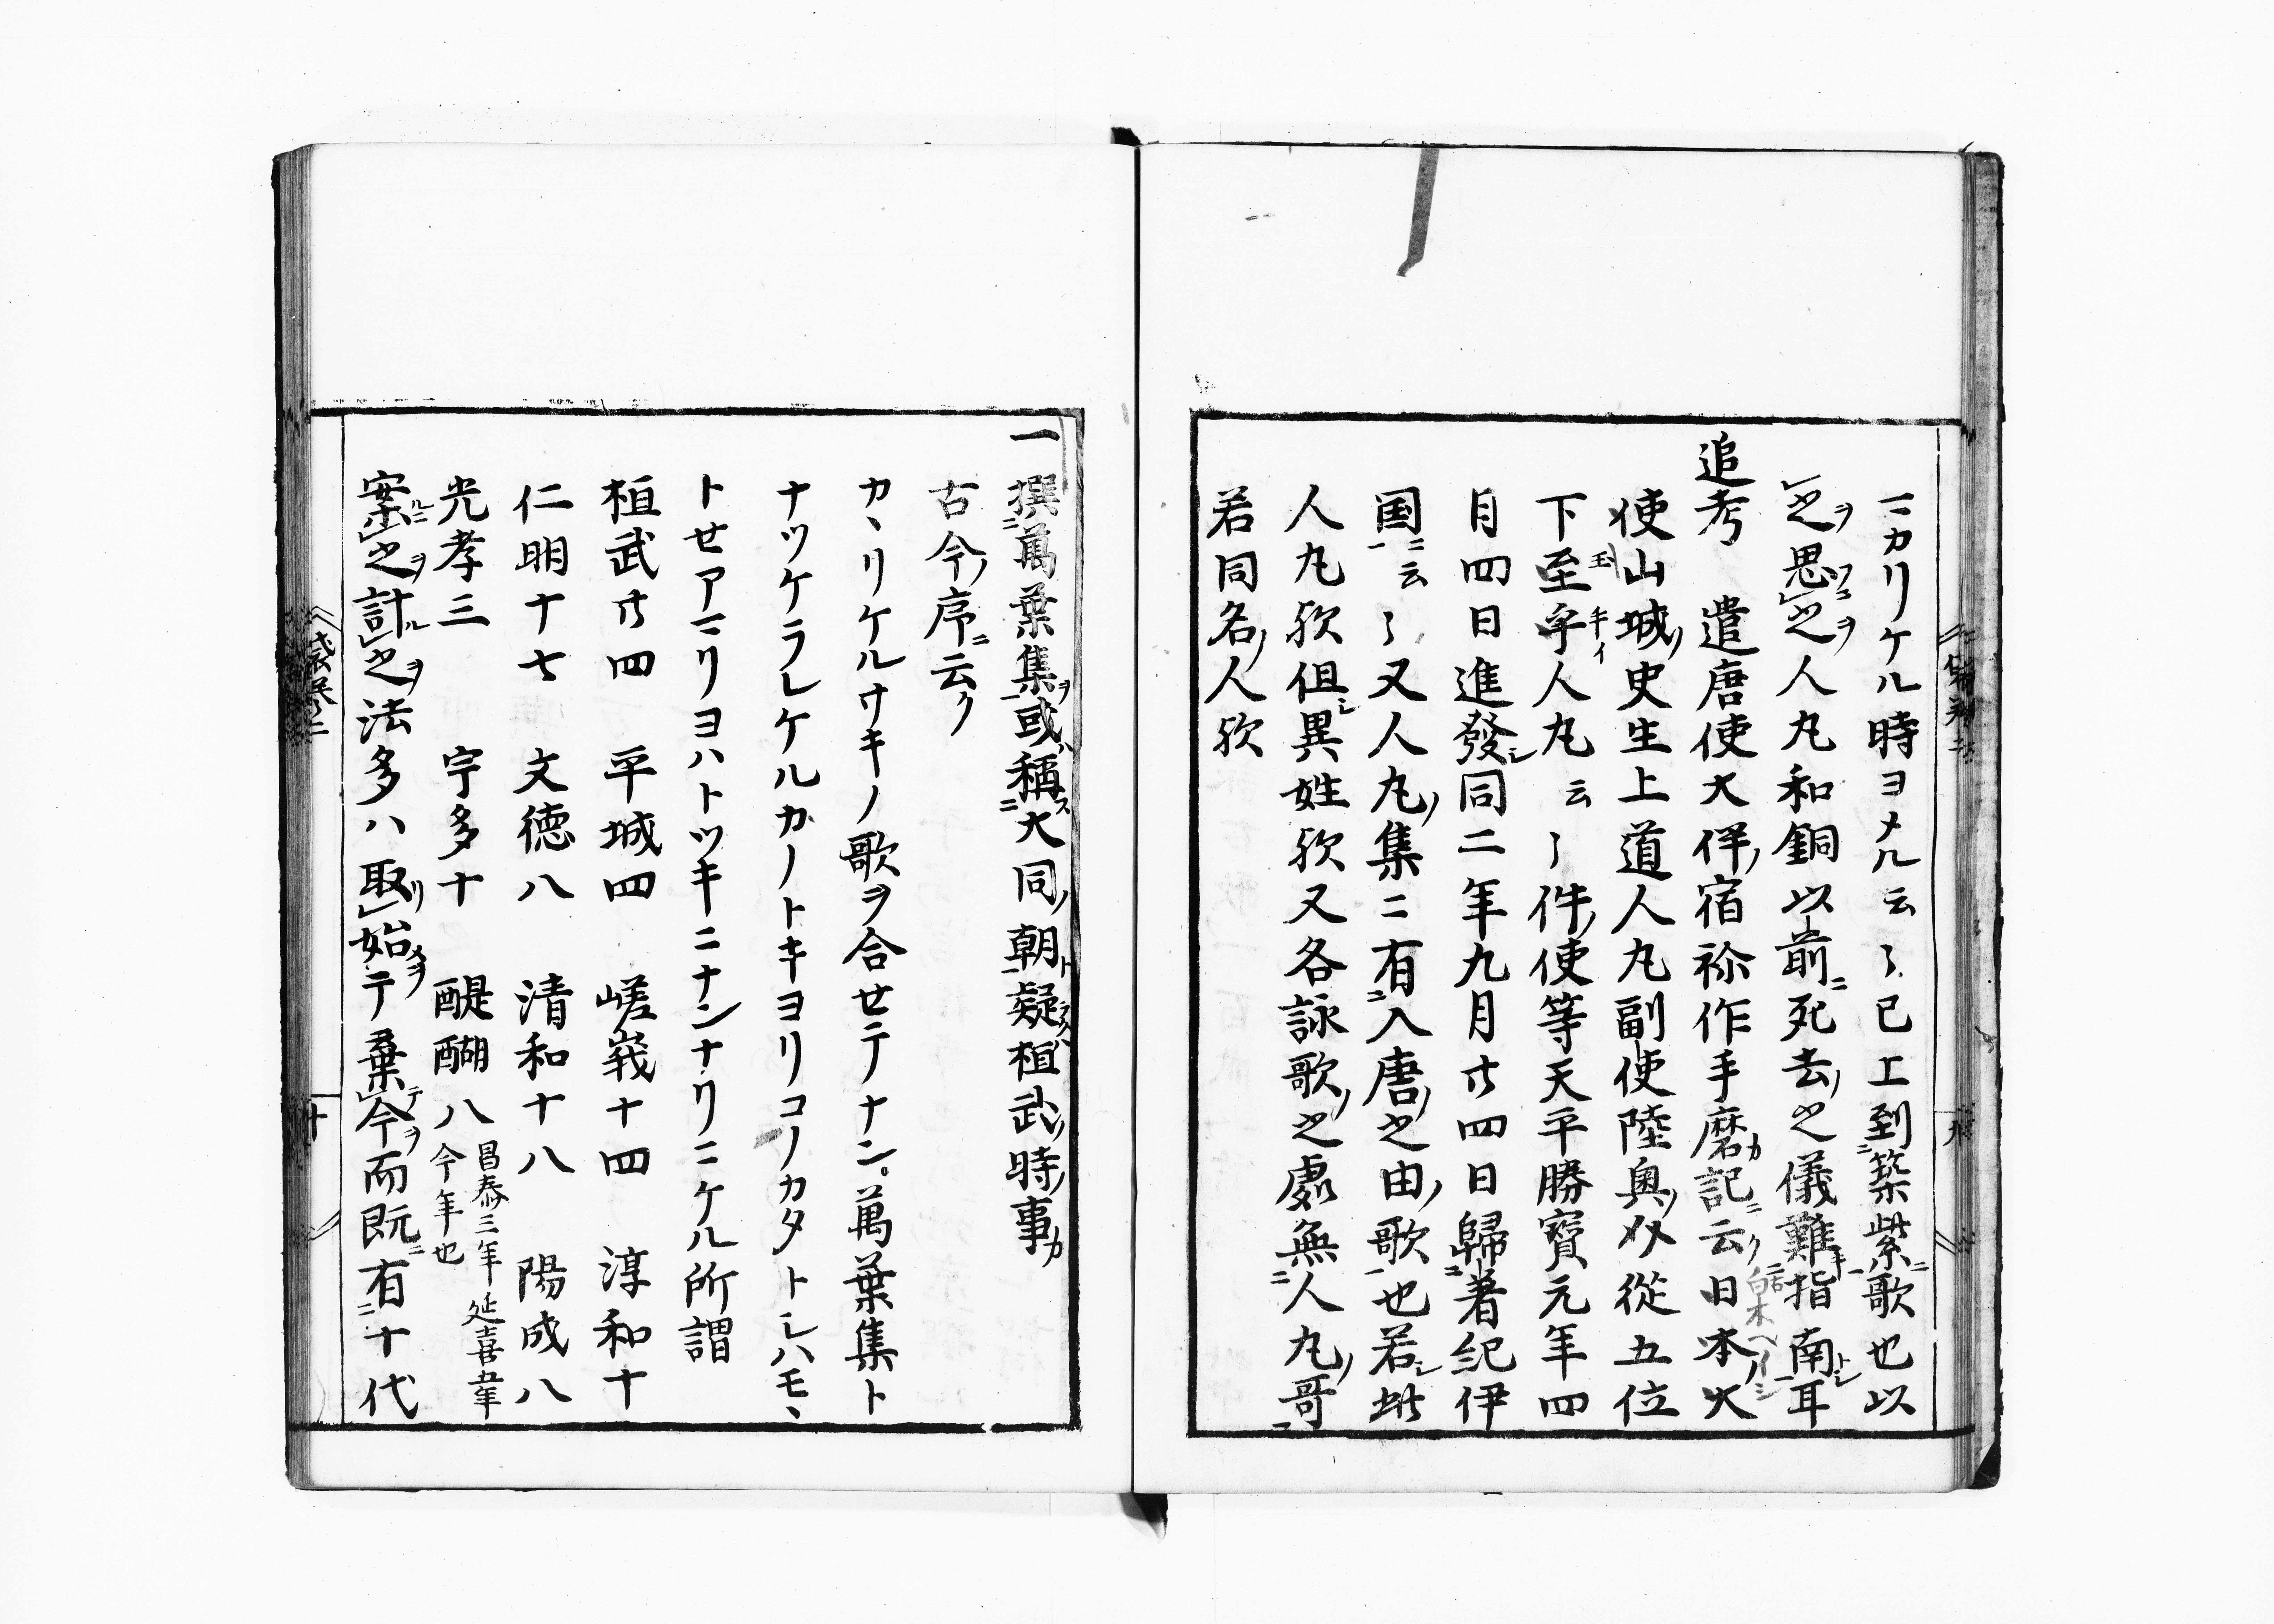 ニカリケル時ヨメル云々已上到筑紫歌也以
之思之人丸和銅以前死去之儀難指南耳
追考　遣唐使大伴宿祢作手麿記云日本大
使山城史生上道人丸副使陸奥介従五位
下至牟人丸云々件使等天平勝寳元年四
月四日進發同二年九月廿四日歸着紀伊
国云々又人丸集ニ有入唐之由歌也若此
人丸欤但異姓欤又各詠歌之處無人丸哥
若同名人欤
一撰萬葉集或稱大同朝疑桓武時事
古今序云
カヽリケルサキノ歌ヲ合セテナン。萬葉集ト
ナツケラレケルカノトキヨリコノカタトシハモヽ
トセアマリヨハトツキニナンナリニケル所謂
桓武廿四　平城四　嵯峩十四　淳和十
仁明十七　文徳八　清和十八　陽成八
光孝三　宇多十　醍醐八昌泰三年　延喜五年
今年也
案之計之法多ハ取始テ棄今而既有十代
袋巻二
十